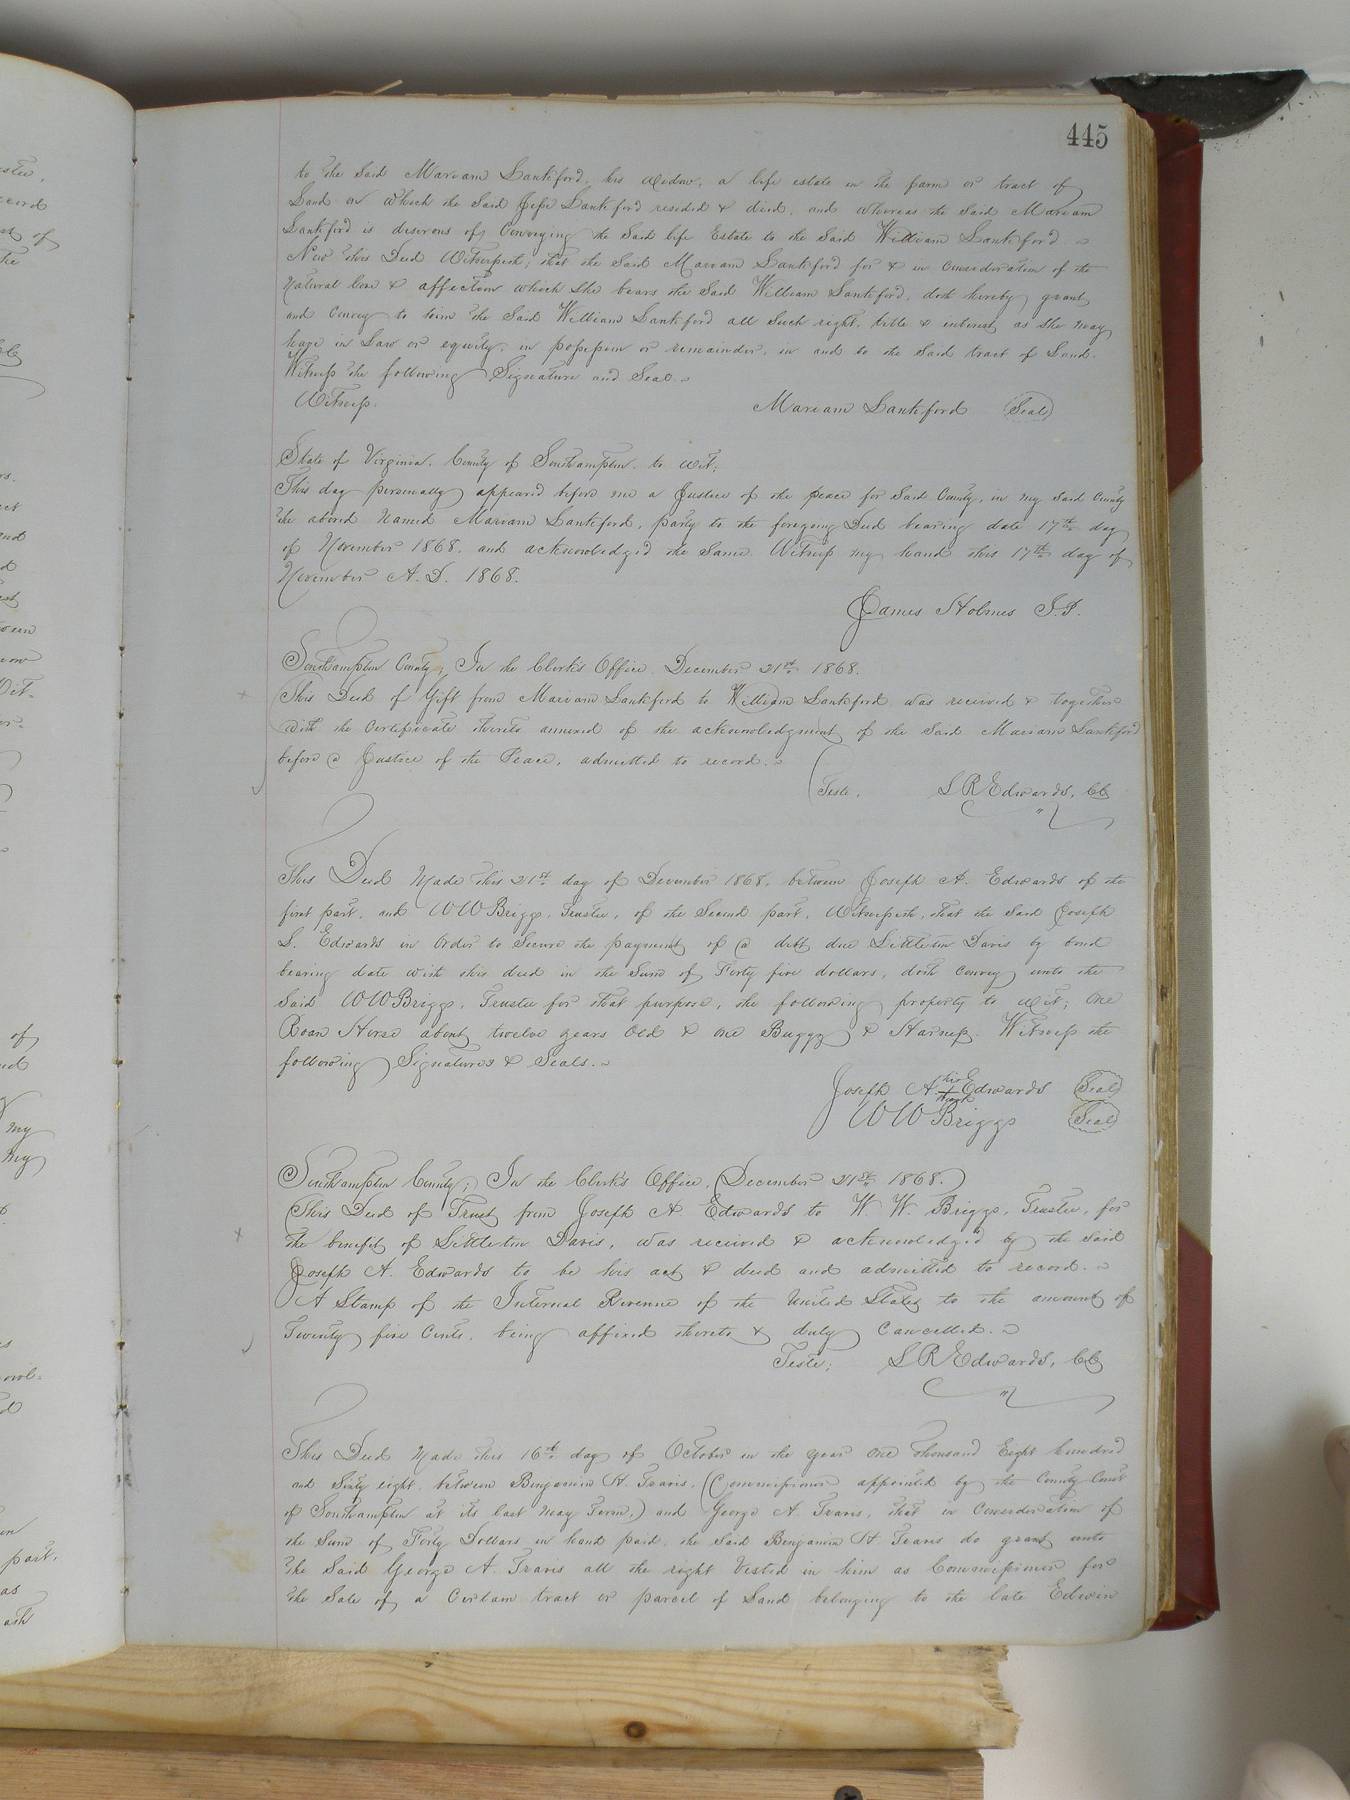 445
to the Said Mariam Lankford, his widow, a life estate in the farm or tract of
Land on which the Said Jesse Lankford resided & died, and whereas the Said Mariam
Lankford is desirous of Conveying the Said life Estate to the Said William Lankford
Now this Deed Witnesseth, that the Said Mariam Lankford for & in Consideration of the
Natural love & affection which She bears the Said William Lankford, doth hereby grant
and Convey to him the Said William Lankford all Such right, title & interest as She may
have in Law or equity, in possession or remainder, in and to the Said tract of Land.
Witness the following Signature and Seal.
Witness.
Mariam Lankford (Seal)
State of Virginia, County of Southampton, to wit;
This day personally appeared before me a Justice of the peace for Said County, in my Said County
the above Named Mariam Lankford, party to the foregoing Deed bearing date 17th day
of November 1868, and acknowledged the Same. Witness my hand this 17th day of
November A. D. 1868.
James Holmes J.P.
Southampton County, In the Clerk's Office, December 21st 1868.
This Deed of Gift from Mariam Lankford to William Lankford was received & together
with the Certificate thereto annexed of the acknowledgment of the Said Mariam Lankford
before a Justice of the Peace, admitted to record.
Teste, L R Edwards, CC
This Deed Made this 21st day of December 1868, between Joseph A. Edwards of the
first part, and W W Briggs, Trustee, of the Second part, Witnesseth, that the Said Joseph
S. Edwards in Order to Secure the payment of a debt due Littleton Davis by bond
bearing date with this deed in the Sum of Forty five dollars, doth Convey unto the
Said W W Briggs, Trustee for that purpose, the following property to wit; One
Roan Horse about twelve years Old & one Buggy & Harness. Witness the
following Signatures & Seals.
Joseph A. his + mark Edwards (Seal)
W W Briggs (Seal)
Southampton County; In the Clerk's Office, December 21st 1868.
This Deed of Trust from Joseph A. Edwards to W. W. Briggs, Trustee, for
the benefit of Littleton Davis, was received & acknowledged by the Said
Joseph A. Edwards to be his act & deed and admitted to record.
A Stamp of the Internal Revenue of the United States to the amount of
Twenty five Cents, being affixed thereto & duly Cancelled.
Teste; L R Edwards, CC
This Deed Made this 16th day of October in the year One thousand Eight hundred
and Sixty eight, between Benjamin H. Travis, (Commissioner appointed by the County Court
of Southampton at its last May Term,) and George A. Travis, that in Consideration of
the Sum of Forty Dollars in hand paid, the Said Benjamin H. Travis do grant unto
the Said George A. Travis all the right Vested in him as Commissioner for
the Sale of a Certain tract or parcel of Land belonging to the late Edwin